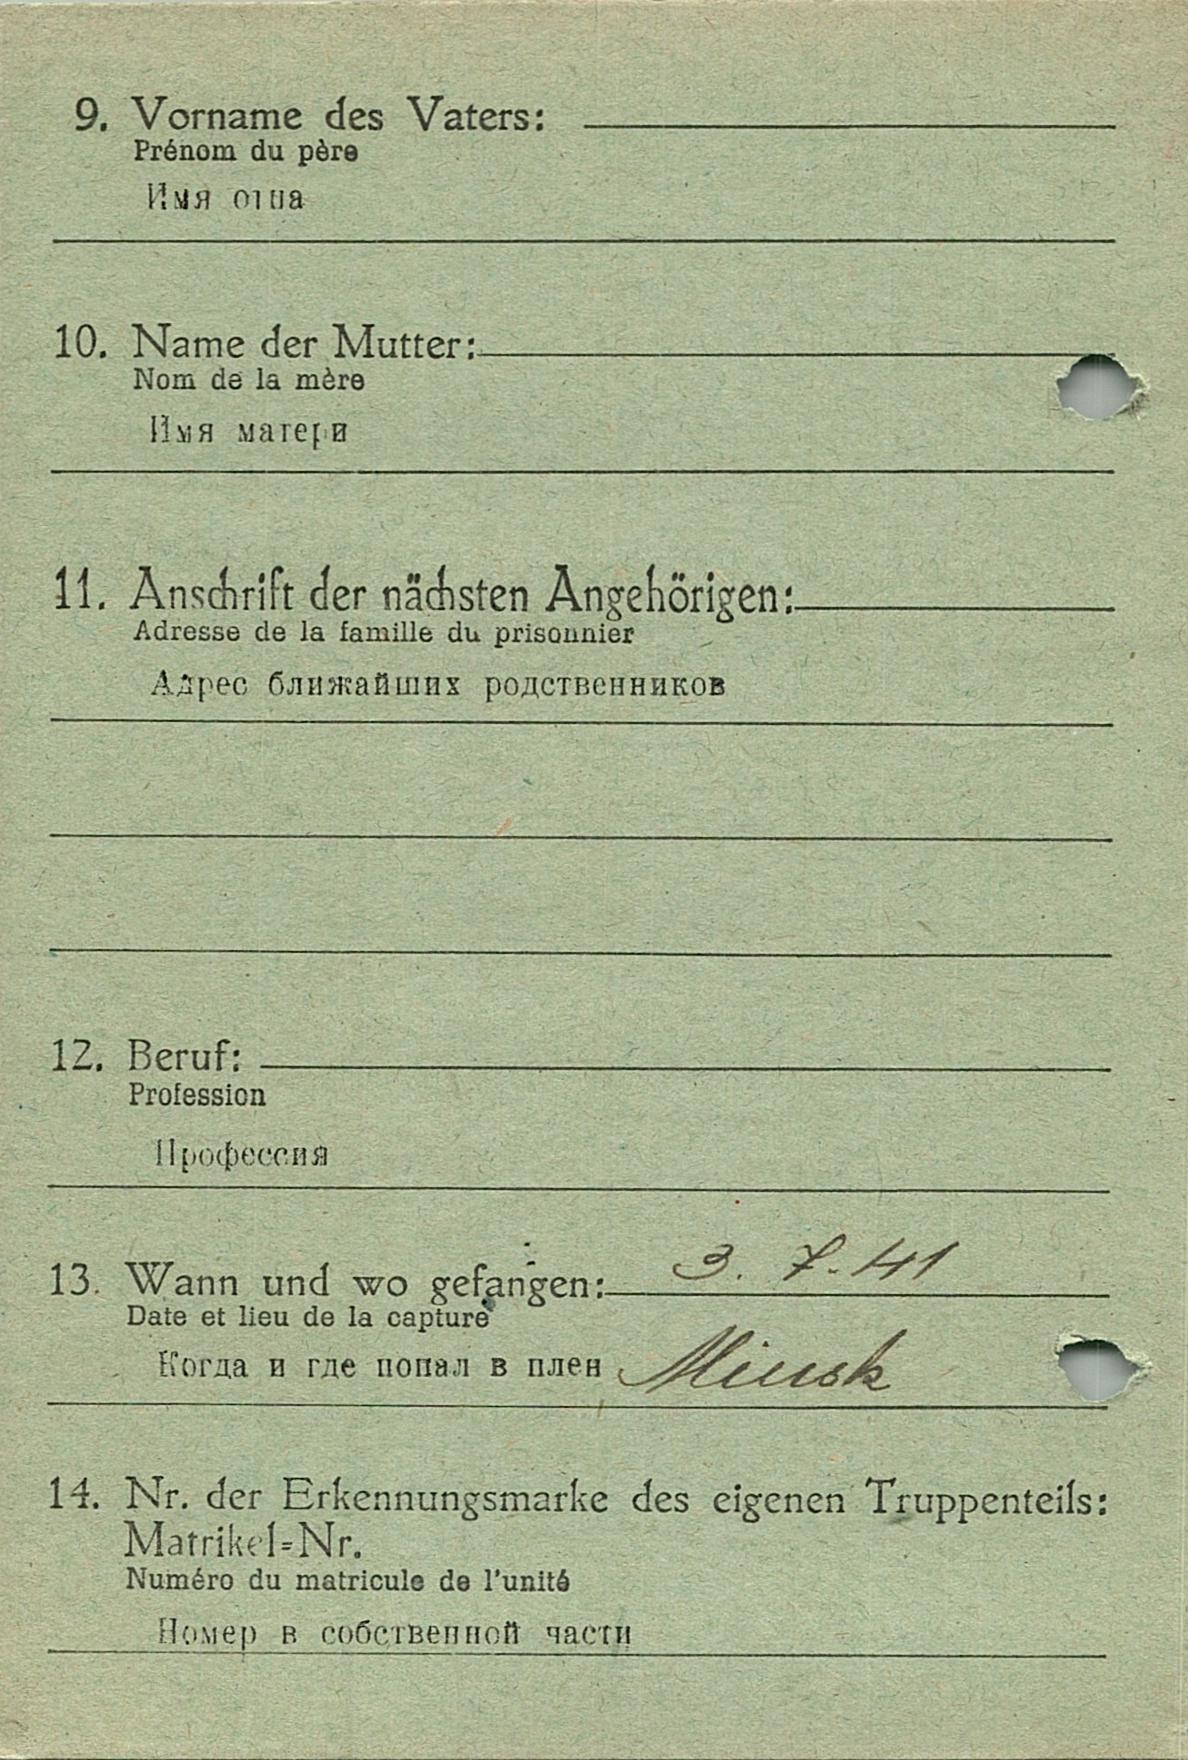 9. Vorname des Vaters:
Prénom du père
Имя отца
10. Name der Mutter:
Nom de la mère
Имя матери
11. Anschrift der nächsten Angehörigen:
Adresse de la famille du prisonnier
Адрес ближайших родственников
12. Beruf:
Profession
Профессия
13. Wann und wo gefangen: 3. 7. 41
Date et lieu de la capture
Когда и где попал в плен Minsk
14. Nr. der Erkennungsmarke des eigenen Truppenteils:
Matrikel=Nr.
Numéro du matricule de l'unité
Номер в собственной части